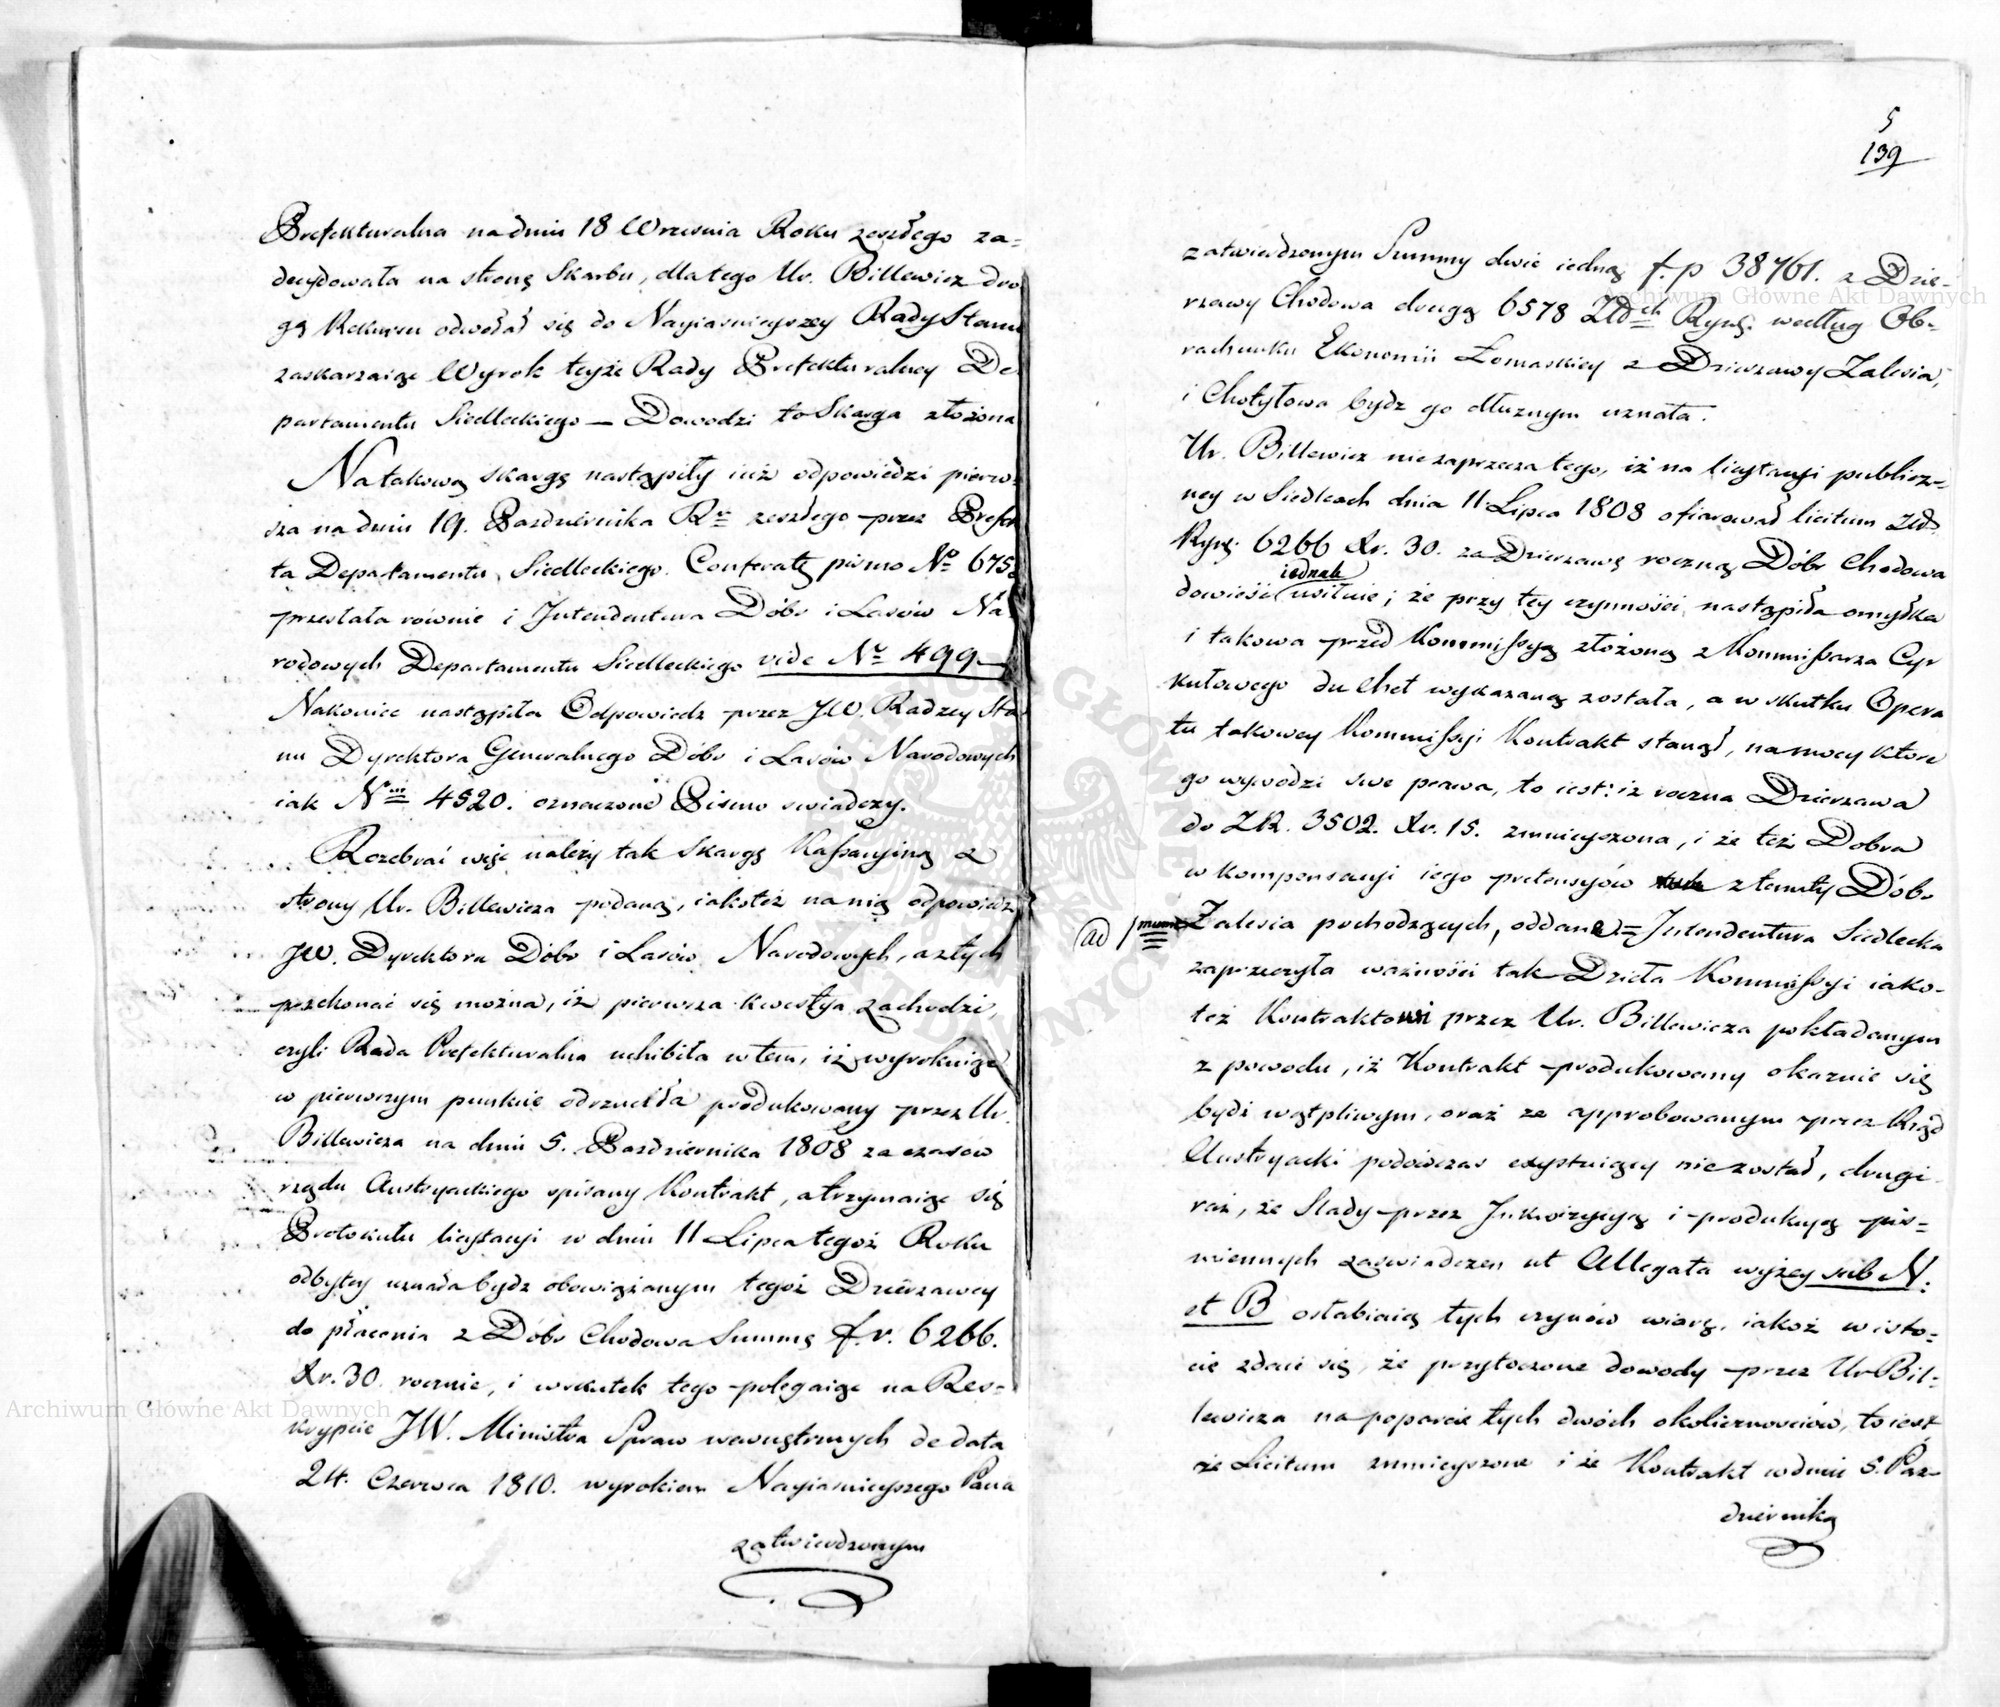 Prefekturalna na dniu 18 Września Roku zeszłego za=
decydowała na stronę Skarbu, dla tego Ur. Billewicz dro
gą Rekursu odwołał się do Nayiasnieyszey Rady Stanu
zaskarzaiąc Wyrok teyże Rady Prefekturalney De
partamentu Siedleckiego — Dowodzi to Skarga złożona
Na takową skargę nastąpiły iuż odpowiedzi pierw=
sza na dniu 19. Pazdziernika Ru zeszłego przez Prefek
ta Departamentu Siedleckiego. pismo No 675
przesłała równie i Intendentura Dóbr i Lasów Na
rodowych Departamentu Siedleckiego vide No 499 —
Nakoniec nastąpiła Odpowiedz przez JW. Radzcy Sta
nu Dyrektora Generalnego Dóbr i Lasów Narodowych
iak Nm 4520. oznaczone Pismo swiadczy.
Rozebrać więc należy tak Skargę Kassacyiną z
strony Ur. Billewicza podaną, iakoteż na nią odpowiedz
JW. Dyrektora Dóbr i Lasów Narodowych, a z tych
przekonać się można, iż pierwsza kwestya zachodzi,
czyli Rada Prefekturalna uchibiła w tem, iż wyrokuiąc
w pierwszym punkcie odrzuciła produkowany przez Ur.
Billewicza na dniu 5. Pazdziernika 1808 za czasów
rządu Austryackiego spisany Kontrakt, a trzymaiąc się
Protokułu licytacyi w dniu 11 Lipca tegoż Roku
odbytey uznała bydz obowiązanym tegoż Dzierzawcy
do płacenia z Dóbr Chodowa Summę f. r. 6266.
Xr. 30 rocznie, i wskutek tego polegaiąc na Res=
krypcie JW. Ministra Spraw wewnętrznych de data
24. Czerwca 1810. wyrokiem Nayiasnieyszego Pana
zatwierdzonym
5
139
zatwierdzonym Summy dwie iedną f. p 38761. z Dzie=
rzawy Chodowa drugą 6578 Złdch Ryńs. według Ob=
rachunku Ekonomii Łomaskiey z Dzierzawy Zalesia,
i Chotyłowa bydz go dłużnym uznała.
Ur. Billewicz nie zaprzecza tego, iż na licytacyi publicz=
ney w Siedlcach dnia 11 Lipca 1808 ofiarował licitum Złd
Ryńs. 6266 Xr. 30. za Dzierzawę roczną Dóbr Chodowa
iednak
dowieść usiłuie; że przy tey czynności nastąpiła omyłka
i takowa przed Kommissyą złożoną z Kommissarza Cyr
kułowego du Chet wykazaną została, a w skutku Opera
tu takowey Kommissyi Kontrakt stanął, na mocy które
go wywodzi swe prawa, to iest: iż roczna Dzierzawa
do ZR. 3502. Xr. 15. zmnieyszona, i że też Dobra
w kompensacyi iego pretensyów z tenuty Dóbr
ad 1mum Zalesia pochodzących, oddane = Intendentura Siedlecka
zaprzeczyła ważności tak Dzieła Kommissyi iako=
też Kontraktowi przez Ur. Billewicza pokładanym
z powodu, iż Kontrakt produkowany okazuie się
bydź wątpliwym, oraz że approbowanym przez Rząd
Austryacki podówczas exystuiący nie został, drugi
raz, że Slady przez Inkwizycyą i produkcyą piś=
miennych zaświadczeń ut Allegata wyżey sub N.
et B osłabiaią tych czynów wiarę, iakoż w isto=
cie zdaie się, że przytoczone dowody przez Ur Bil=
lewicza na poparcie tych dwóch okoliczności, to iest
że Licitum zmnieyszone i że Kontrakt w dniu 5. Paz=
dziernika
Archiwum Główne Akt Dawnych
Archiwum Główne Akt Dawnych